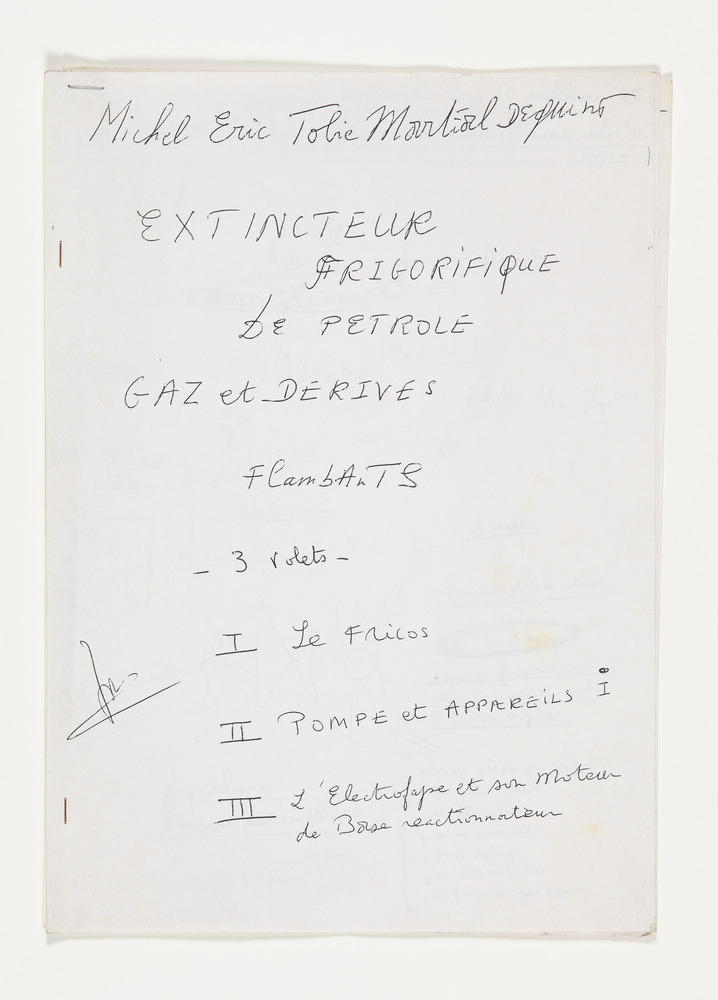 Michel Eric Tobie Martial DEquint
EXTINCTEUR
FRIGORIFIQUE
DE PETROLE
GAZ et DERIVES
FlambAnTS
- 3 volets -
I Le FRicos
II POMPE et APPAREilS I
III L'Electrofape et son Moteur
de Base reactionnateur